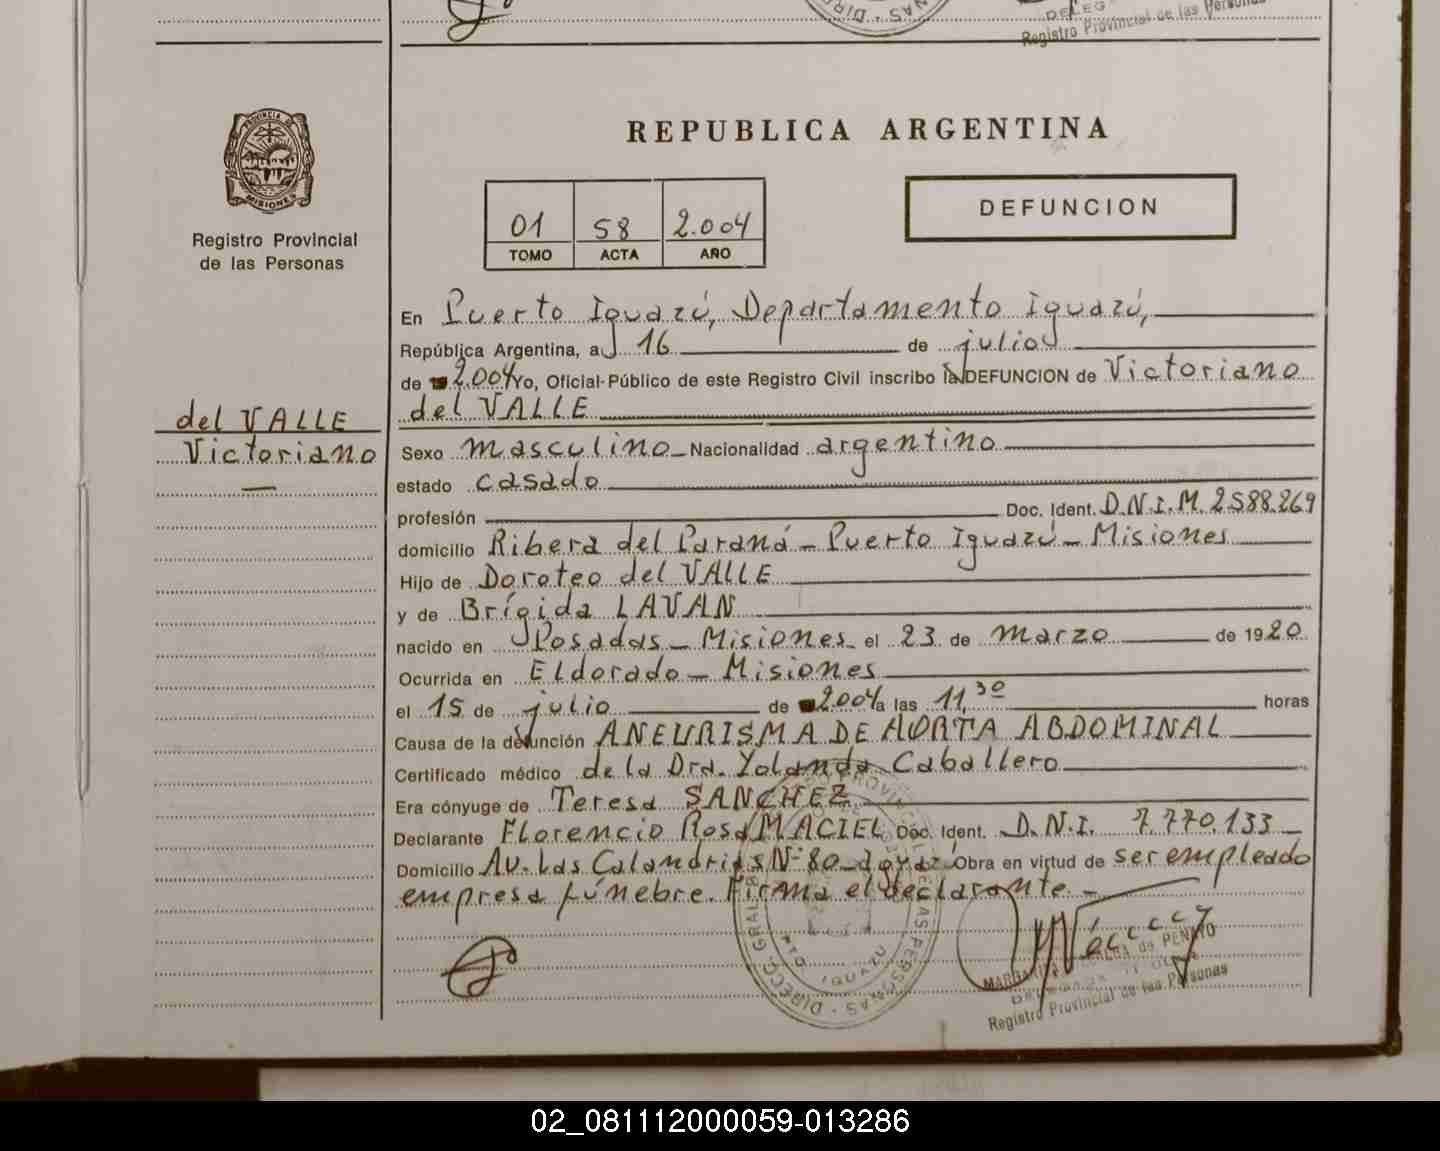 Registro Provincial de las Personas
PROVINCIA DE
MISIONES
Registro Provincial
de las Personas
REPUBLICA ARGENTINA
01 58 2.004
TOMO ACTA AÑO
DEFUNCION
En Puerto Iguazú, Departamento Iguazú,
República Argentina, a 16 de julio
de 2.004 Yo, Oficial Público de este Registro Civil inscribo la DEFUNCION de Victoriano
del VALLE
del VALLE
Victoriano
Sexo masculino Nacionalidad argentino
estado casado
profesión Doc. Ident. D.N.I.M. 2588.269
domicilio Ribera del Paraná - Puerto Iguazú - Misiones
Hijo de Doroteo del VALLE
y de Brígida LAVAN
nacido en Posadas - Misiones el 23 de marzo de 1920
Ocurrida en Eldorado - Misiones
el 15 de julio de 2004 a las 11,30 horas
Causa de la defunción ANEURISMA DE AORTA ABDOMINAL
Certificado médico de la Dra. Yolanda Caballero
Era cónyuge de Teresa SANCHEZ
Declarante Florencio Rosa MACIEL Doc. Ident. D.N.I. 7.770.133
Domicilio Av. Las Calandrias Nº 80 - Iguazú Obra en virtud de ser empleado
empresa fúnebre. Firma el declarante. -
PTO. IGUAZU
Registro Provincial de las Personas
02_081112000059-013286